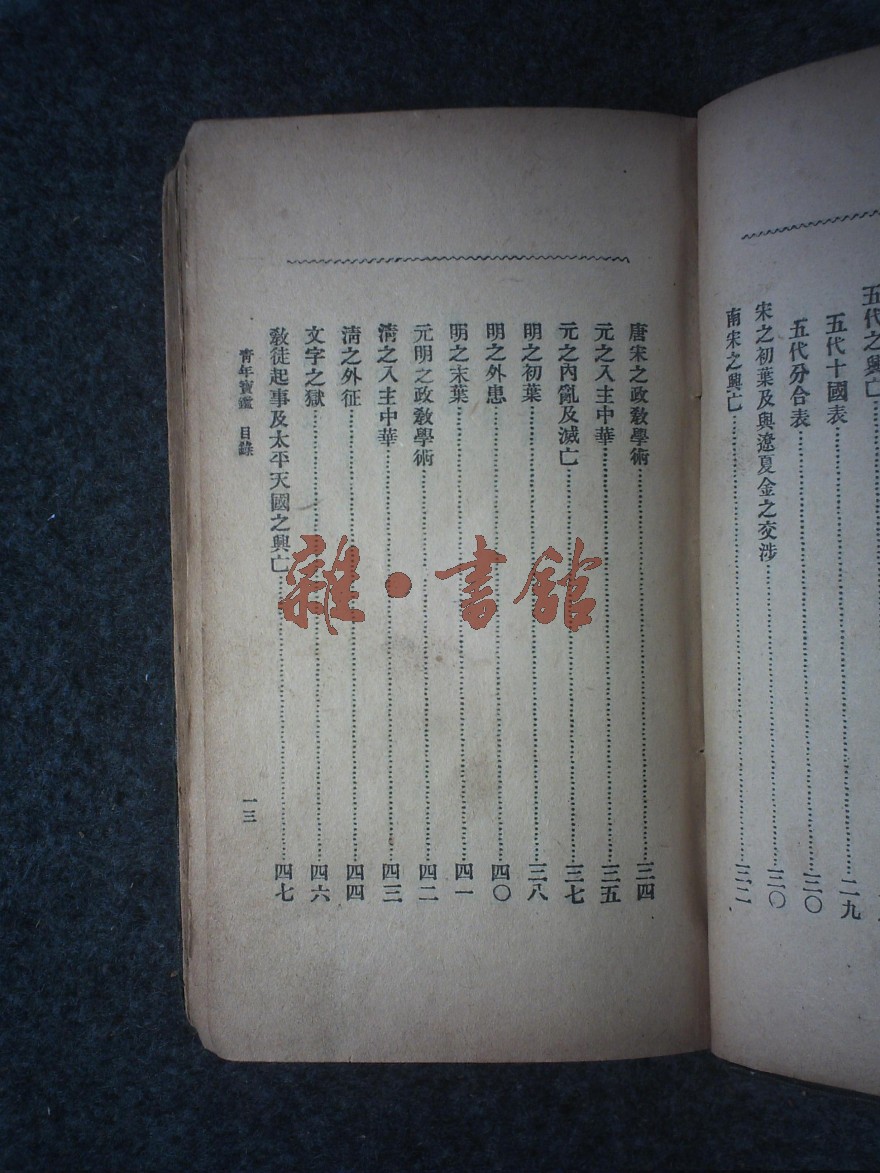 五代之興亡
五代十國表……二九
五代分合表……三〇
宋之初葉及與遼夏金之交涉……三〇
南宋之興亡……三二
唐宋之政敎學術……三四
元之入主中華……三五
元之內亂及滅亡……三七
明之初葉……三八
明之外患……四〇
明之末葉……四一
元明之政敎學術……四二
淸之入主中華……四三
淸之外征……四四
文字之獄……四六
敎徒起事及太平天國之興亡……四七
靑年寶鑑 目錄 一三
雜·書館